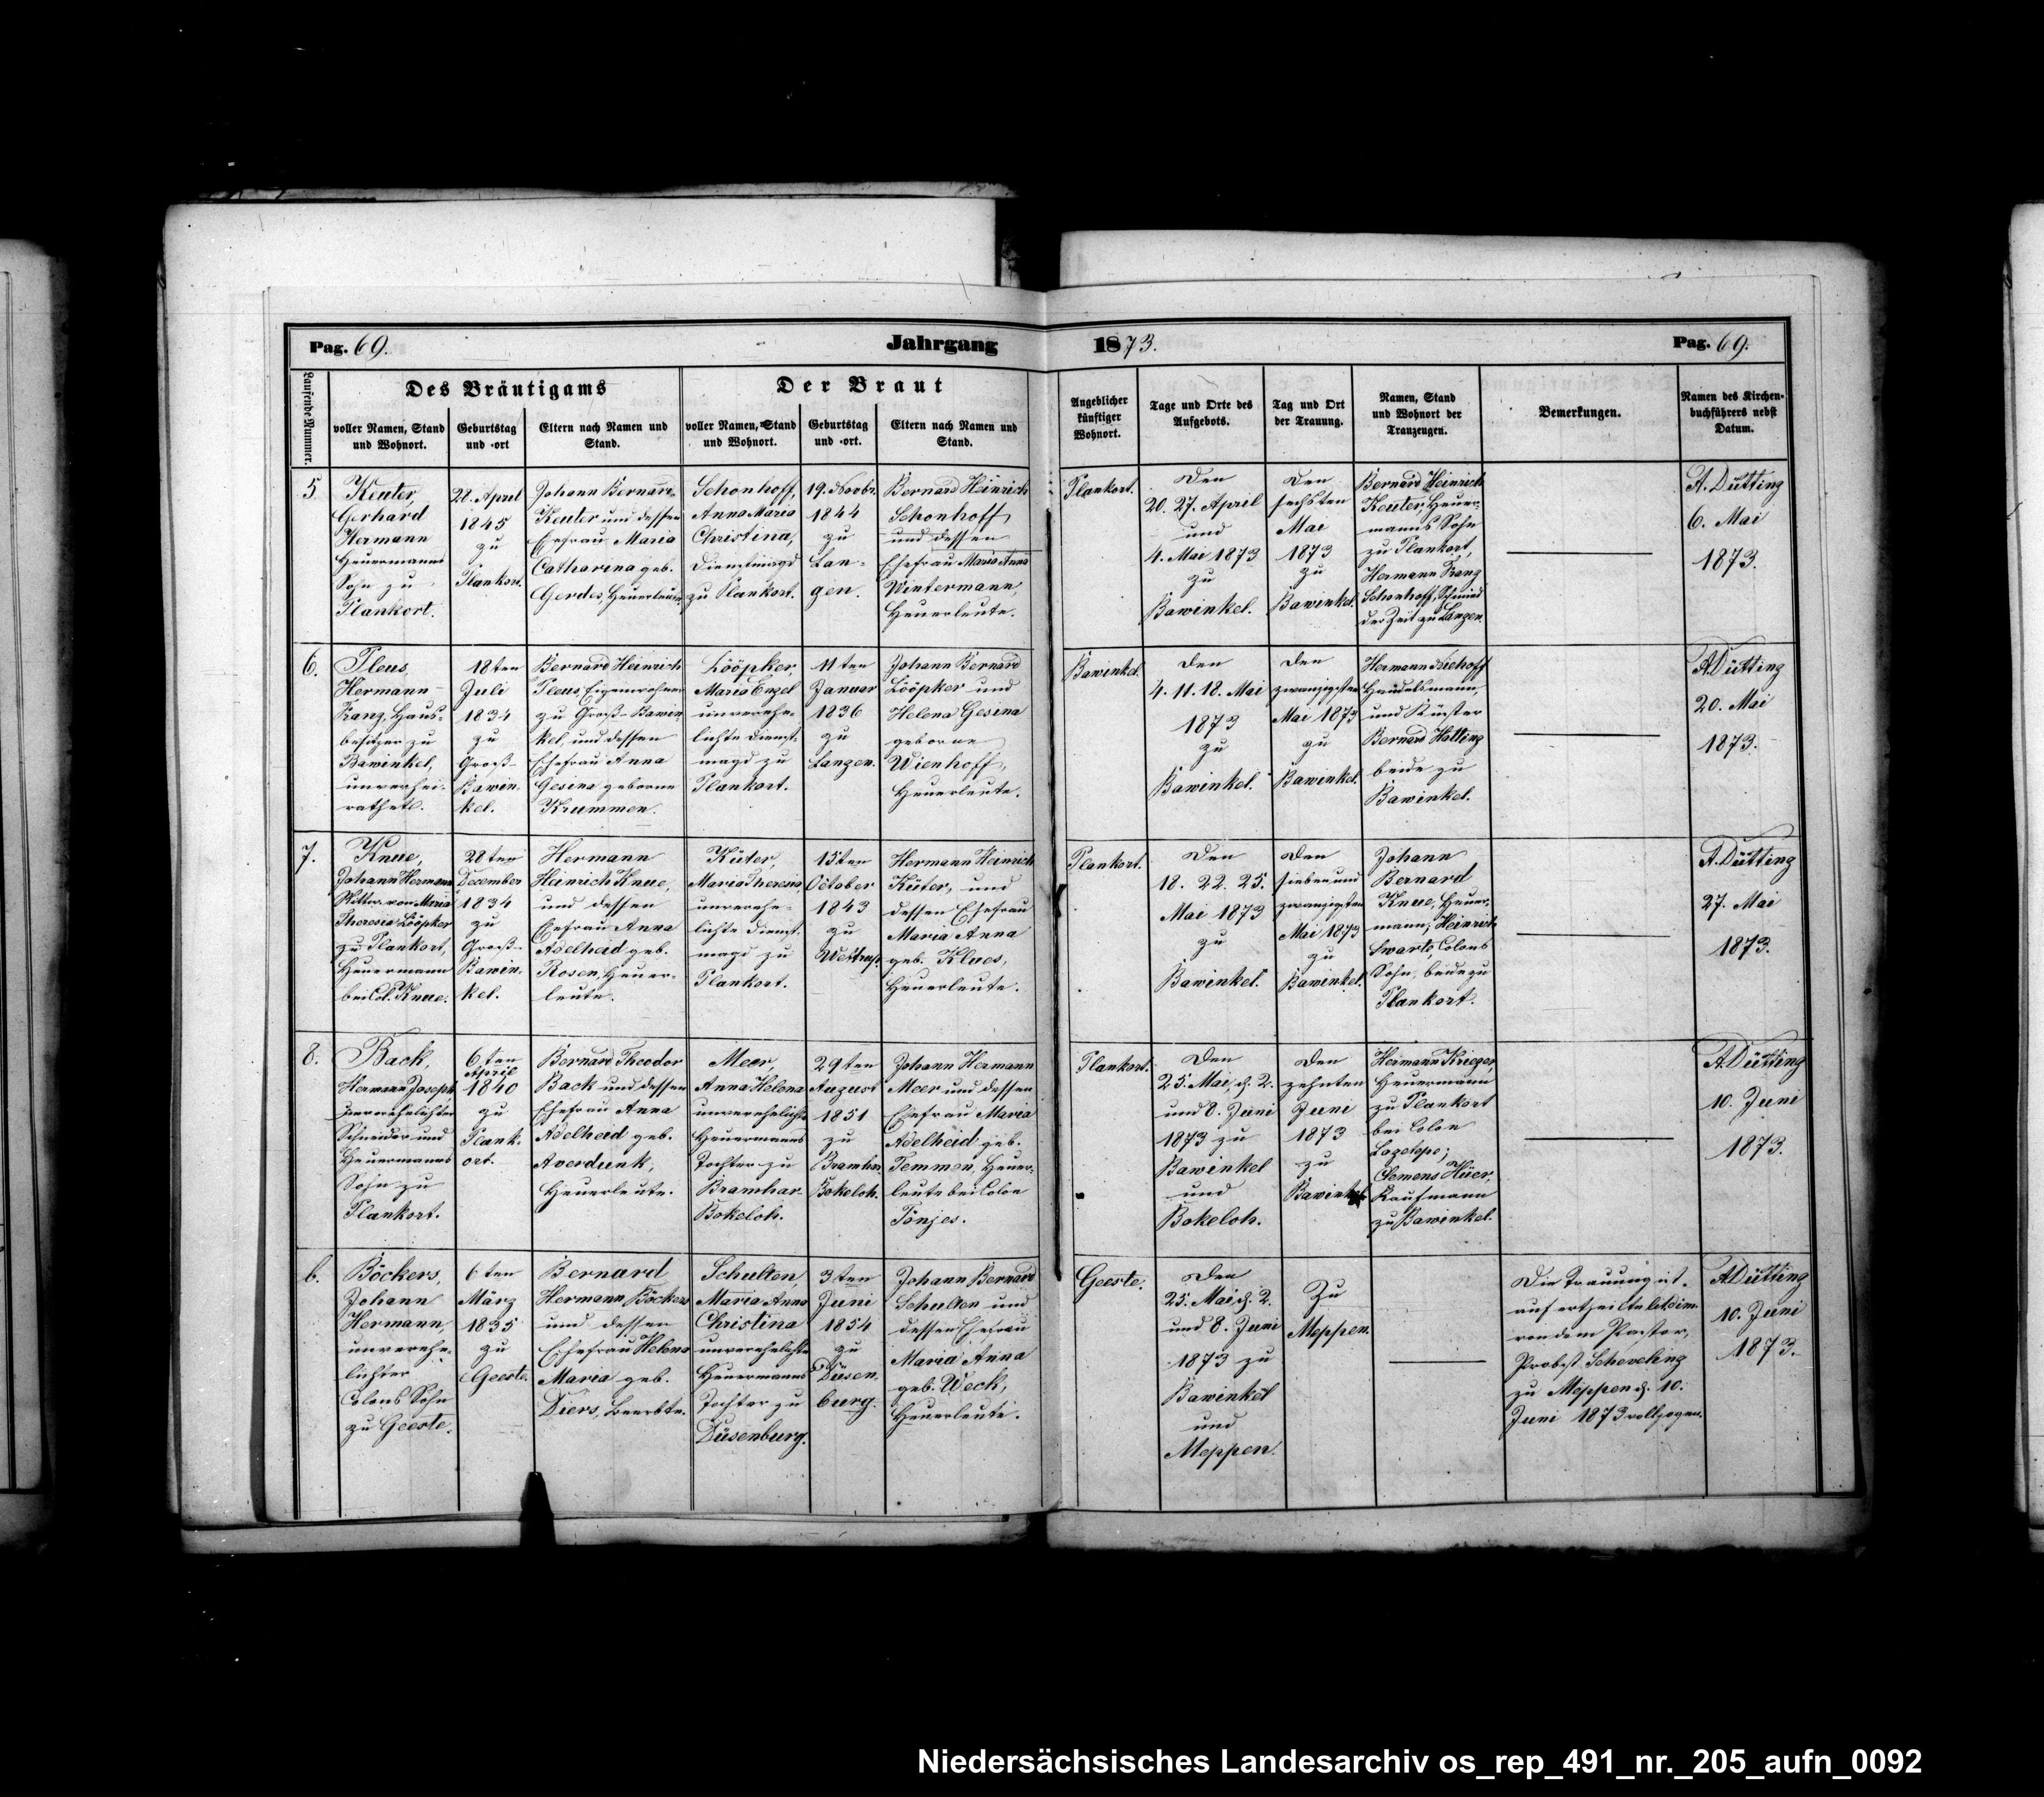 Pag. 69.
Jahrgang
1873.
Pag. 69.
Laufende Nummer.
Des Bräutigams
voller Namen, Stand
und Wohnort.
Geburtstag
und -ort
Eltern nach Namen und
Stand.
Der Braut
voller Namen, Stand
und Wohnort.
Geburtstag
und -ort.
Eltern nach Namen und
Stand.
Angeblicher
künftiger
Wohnort.
Tage und Orte des
Aufgebots.
Tag und Ort
der Trauung.
Namen, Stand
und Wohnort der
Trauzeugen.
Bemerkungen.
Namen des Kirchen-
buchführers nebst
Datum.
5
Keuter,
Gerhard
Hermann
Heuermanns
Sohn zu
Plankort.
28. April
1845
zu
Plankort.
Johann Bernard
Keuter und dessen
Ehefrau Maria
Catharina geb.
Gerdes, Heuerleute.
Schonhoff,
Anna Maria
Christina,
Dienstmagd
zu Plankort.
19. Novbr.
1844
zu
Lan-
gen.
Bernard Heinrich
Schonhoff
und dessen
Ehefrau Maria Anna
Wintermann,
Heuerleute.
Plankort.
Den
20. 27. April
und
4. Mai 1873
zu
Bawinkel.
Den
sechsten
Mai
1873
zu
Bawinkel.
Bernard Heinrich
Keuter, Heuer-
manns Sohn
zu Plankort,
Hermann Franz
Schonhoff, Schmied
der Zeit zu Langen.
A. Dütting
6. Mai
1873.
6.
Pleus,
Hermann
Franz, Haus-
besitzer zu
Bawinkel,
unverhei-
rathet.
18ten
Juli
1834
zu
Groß-
Bawin-
kel.
Bernard Heinrich
Pleus, Eigenwohner
zu Groß-Bawin-
kel, und dessen
Ehefrau Anna
Gesina geborne
Krummen.
Lööpker,
Maria Engel
unverehe-
lichte Dienst-
magd zu
Plankort.
11ten
Januar
1836
zu
Langen.
Johann Bernard
Lööpker und
Helena Gesina
geborne
Wienhoff,
Heuerleute.
Bawinkel.
Den
4. 11. 18. Mai
1873
zu
Bawinkel.
Den
zwanzigsten
Mai 1873
zu
Bawinkel.
Hermann
Handelsmann,
und Küster
Bernard Halting
beide zu
Bawinkel.
A Dütting
20. Mai
1873.
7.
Knue,
Johann Hermann
Wittwr. von Maria
Theresia Lööpker
zu Plankort,
Heuermann
bei Col. Knue.
28ten
December
1834
zu
Groß-
Bawin-
kel.
Hermann
Heinrich Knue,
und dessen
Ehefrau Anna
Adelheid geb.
Rosen, Heuer-
leute.
Küter,
Maria Theresia,
unverehe-
lichte Dienst-
magd zu
Plankort.
15ten
October
1843
zu
Wettrup.
Hermann Heinrich
Küter, und
dessen Ehefrau
Maria Anna
geb. Klues,
Heuerleute.
Plankort.
Den
18. 22. 25.
Mai 1873
zu
Bawinkel.
Den
siebenund
zwanzigsten
Mai 1873
zu
Bawinkel.
Johann
Bernard
Knue, Heuer-
mann; Heinrich
Swarte Colons
Sohn, beide zu
Plankort.
A. Dütting
27. Mai
1873.
8.
Back,
Hermann Joseph,
unverehelichter
Schneider und
Heuermanns
Sohn zu
Plankort.
6ten
April
1840
zu
Plank-
ort.
Bernard Theodor
Back und dessen
Ehefrau Anna
Adelheid geb.
Averdunk,
Heuerleute.
Meer,
Anna Helena
unverehelichte
Heuermanns
Tochter zu
Bramhar-
Bokeloh.
29ten
August
1851
zu
Bramhar
Bokeloh.
Johann Hermann
Meer und dessen
Ehefrau Maria
Adelheid geb.
Temmen, Heuer-
leute bei Colon
Tönjes.
Plankort.
Den
25. Mai, d. 2.
und 8. Juni
1873 zu
Bawinkel
und
Bokeloh.
Den
zehnten
Juni
1873
zu
Bawinkel
Hermann Krieger,
Heuermann
zu Plankort
bei Colon
Clemens Hüer,
Kaufmann
zu Bawinkel.
A Dütting
10. Juni
1873.
b.
Böckers,
Johann
Hermann,
unverehe-
lichter
Colons Sohn
zu Geeste.
6ten
März
1835
zu
Geeste.
Bernard
Hermann Böckers
und dessen
Ehefrau Helena
Maria geb.
Diers, Beerbte.
Schulten,
Maria Anna
Christina
unverehelichte
Heuermanns
Tochter zu
Düsenburg.
3ten
Juni
1854
zu
Düsen-
burg.
Johann Bernard
Schulten und
dessen Ehefrau
Maria Anna
geb. Weck,
Heuerleute.
Geeste.
Den
25. Mai, d. 2.
und 8. Juni
1873 zu
Bawinkel
und
Meppen.
Zu
Meppen.
Die Trauung ist
auf ertheilte lit. dim.
von dem Pastor,
Probst Scheveling
zu Meppen d. 10.
Juni 1873 vollzogen.
A Dütting
10. Juni
1873.
Niedersächsisches Landesarchiv os_rep_491_nr._205_aufn_0092